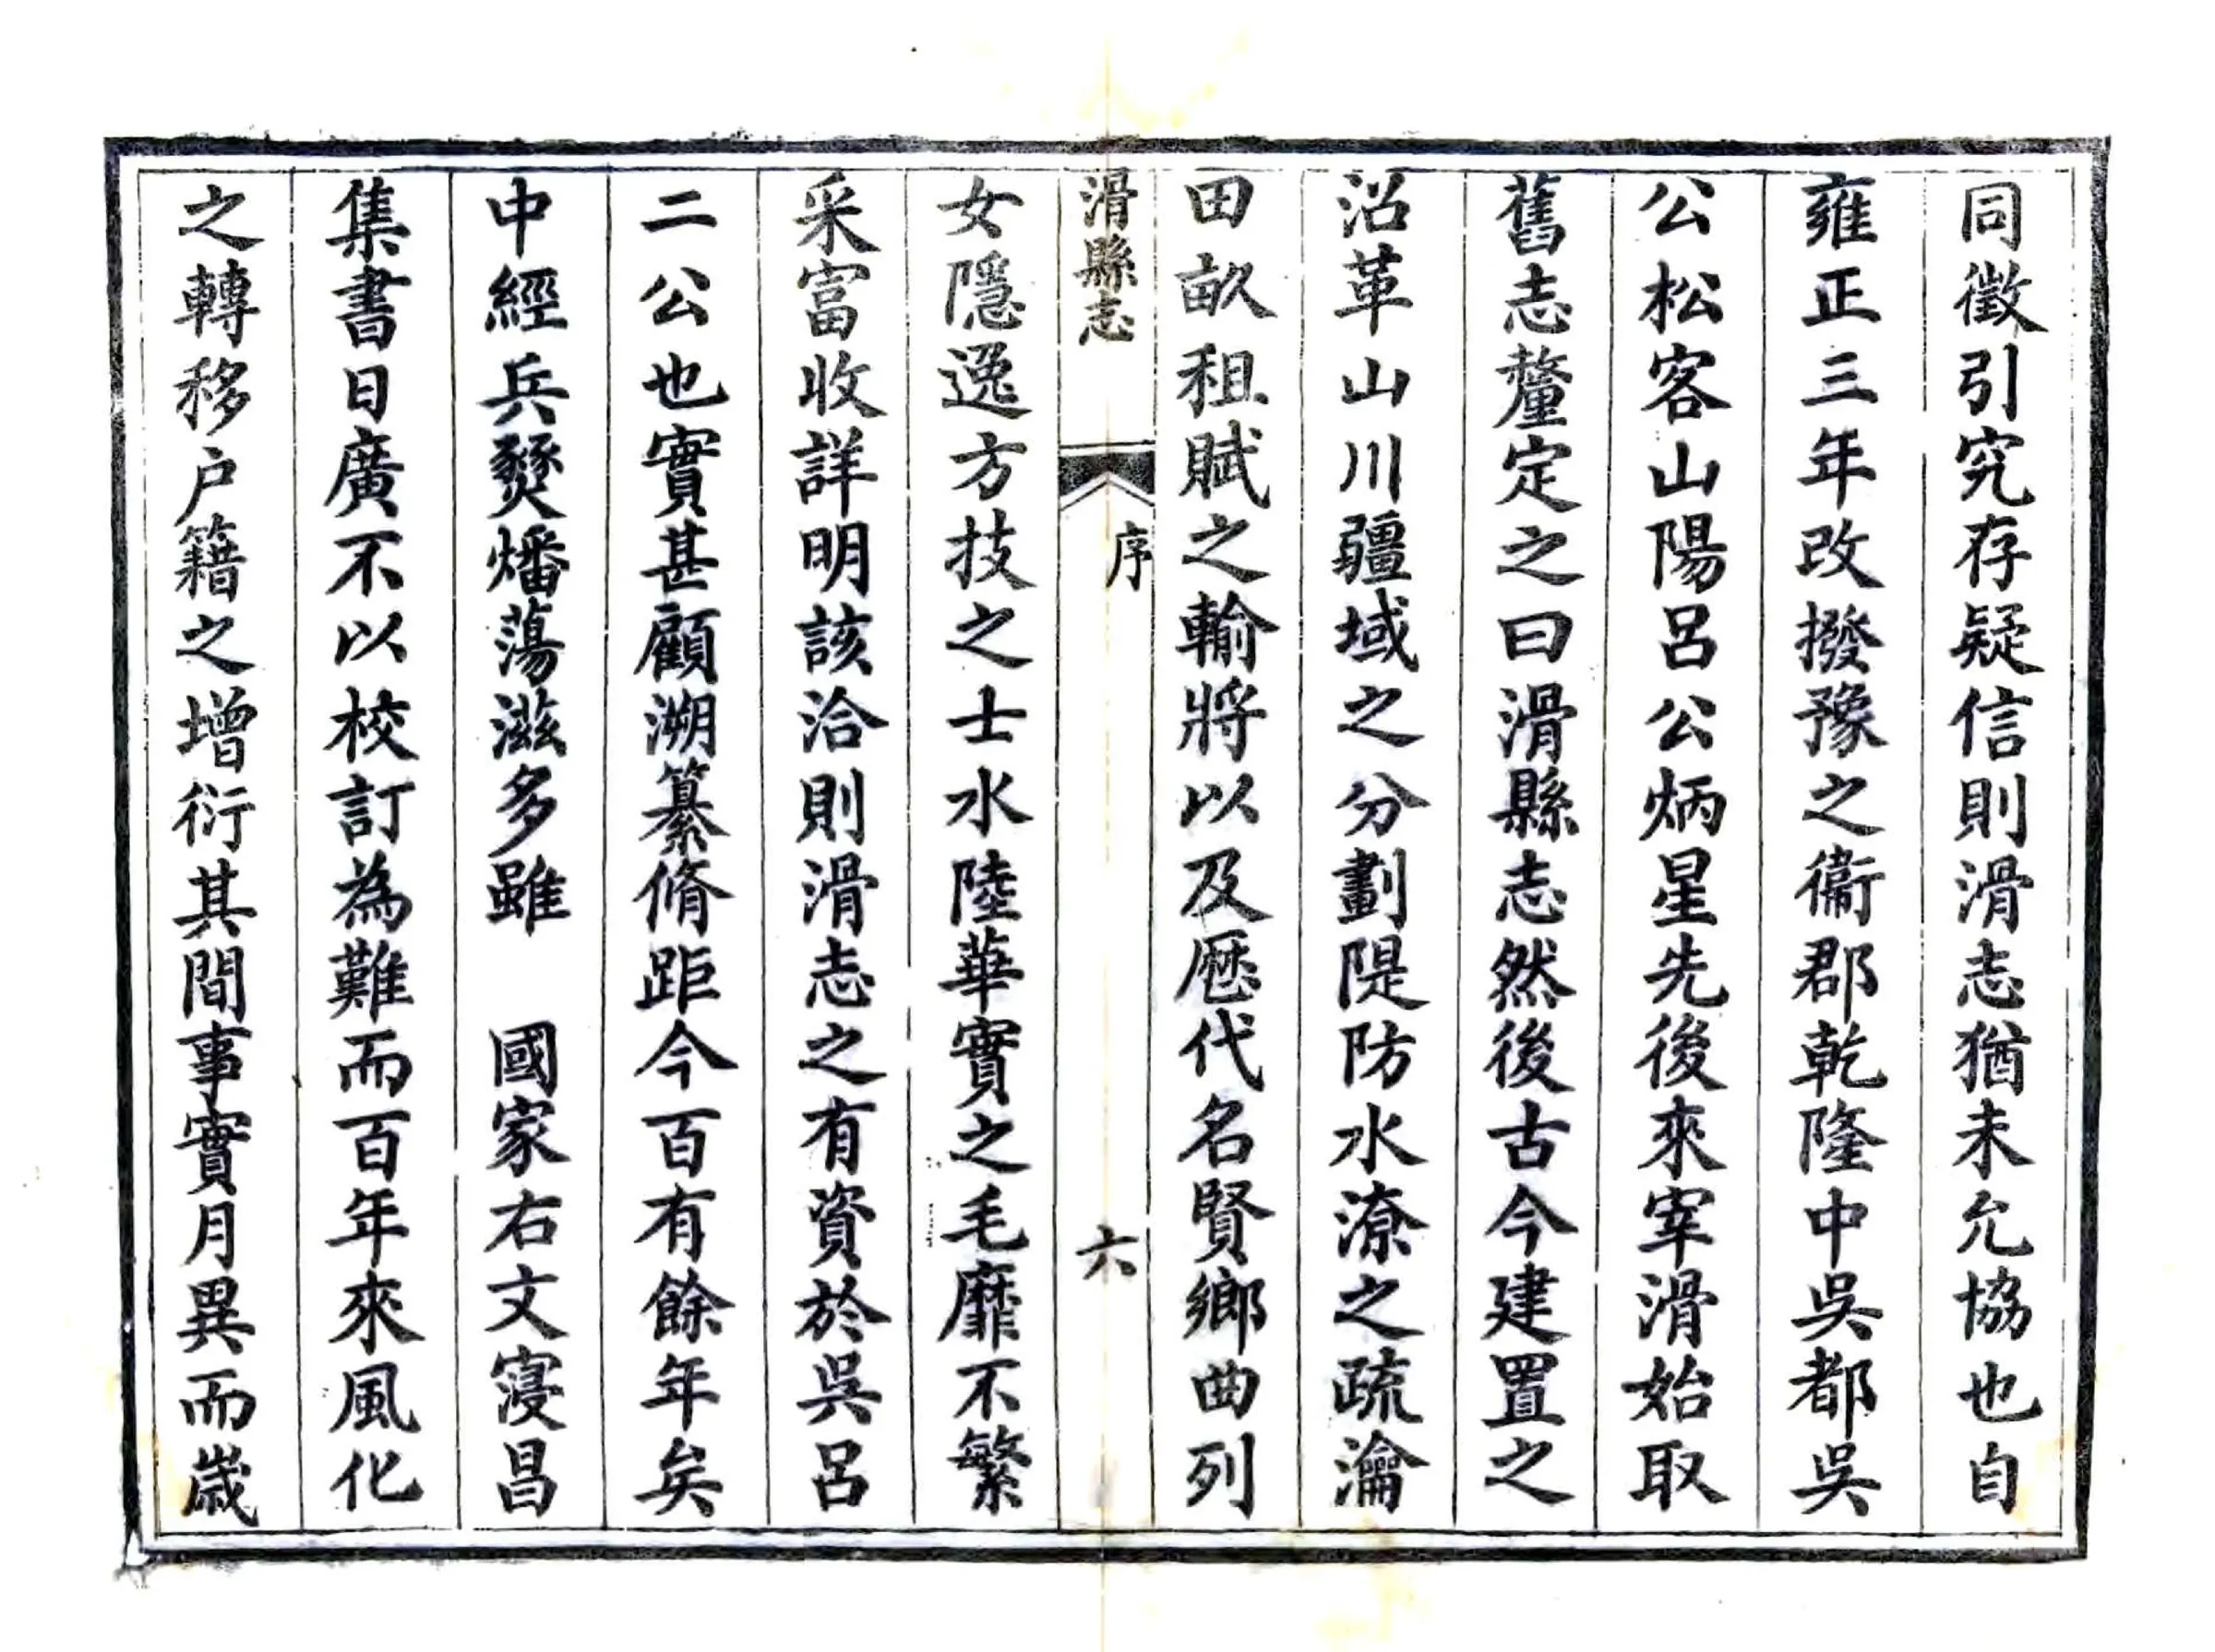 同徵引究存疑信則滑志猶未允協也自
雍正三年改撥豫之衞郡乾隆中吳都吳
公松客山陽呂公炳星先後來宰滑始取
舊志釐定之曰滑縣志然後古今建置之
沿革山川疆域之分劃隄防水潦之疏瀹
田畝租賦之輸將以及歷代名賢鄉曲列
滑縣志
序
六
女隱逸方技之士水陸華實之毛靡不繁
采富收詳明該洽則滑志之有資於吳呂
二公也實甚顧溯纂脩距今百有餘年矣
中經兵燹燔蕩滋多雖 國家右文寖昌
集書日廣不以校訂為難而百年來風化
之轉移户籍之增衍其間事實月異而歲